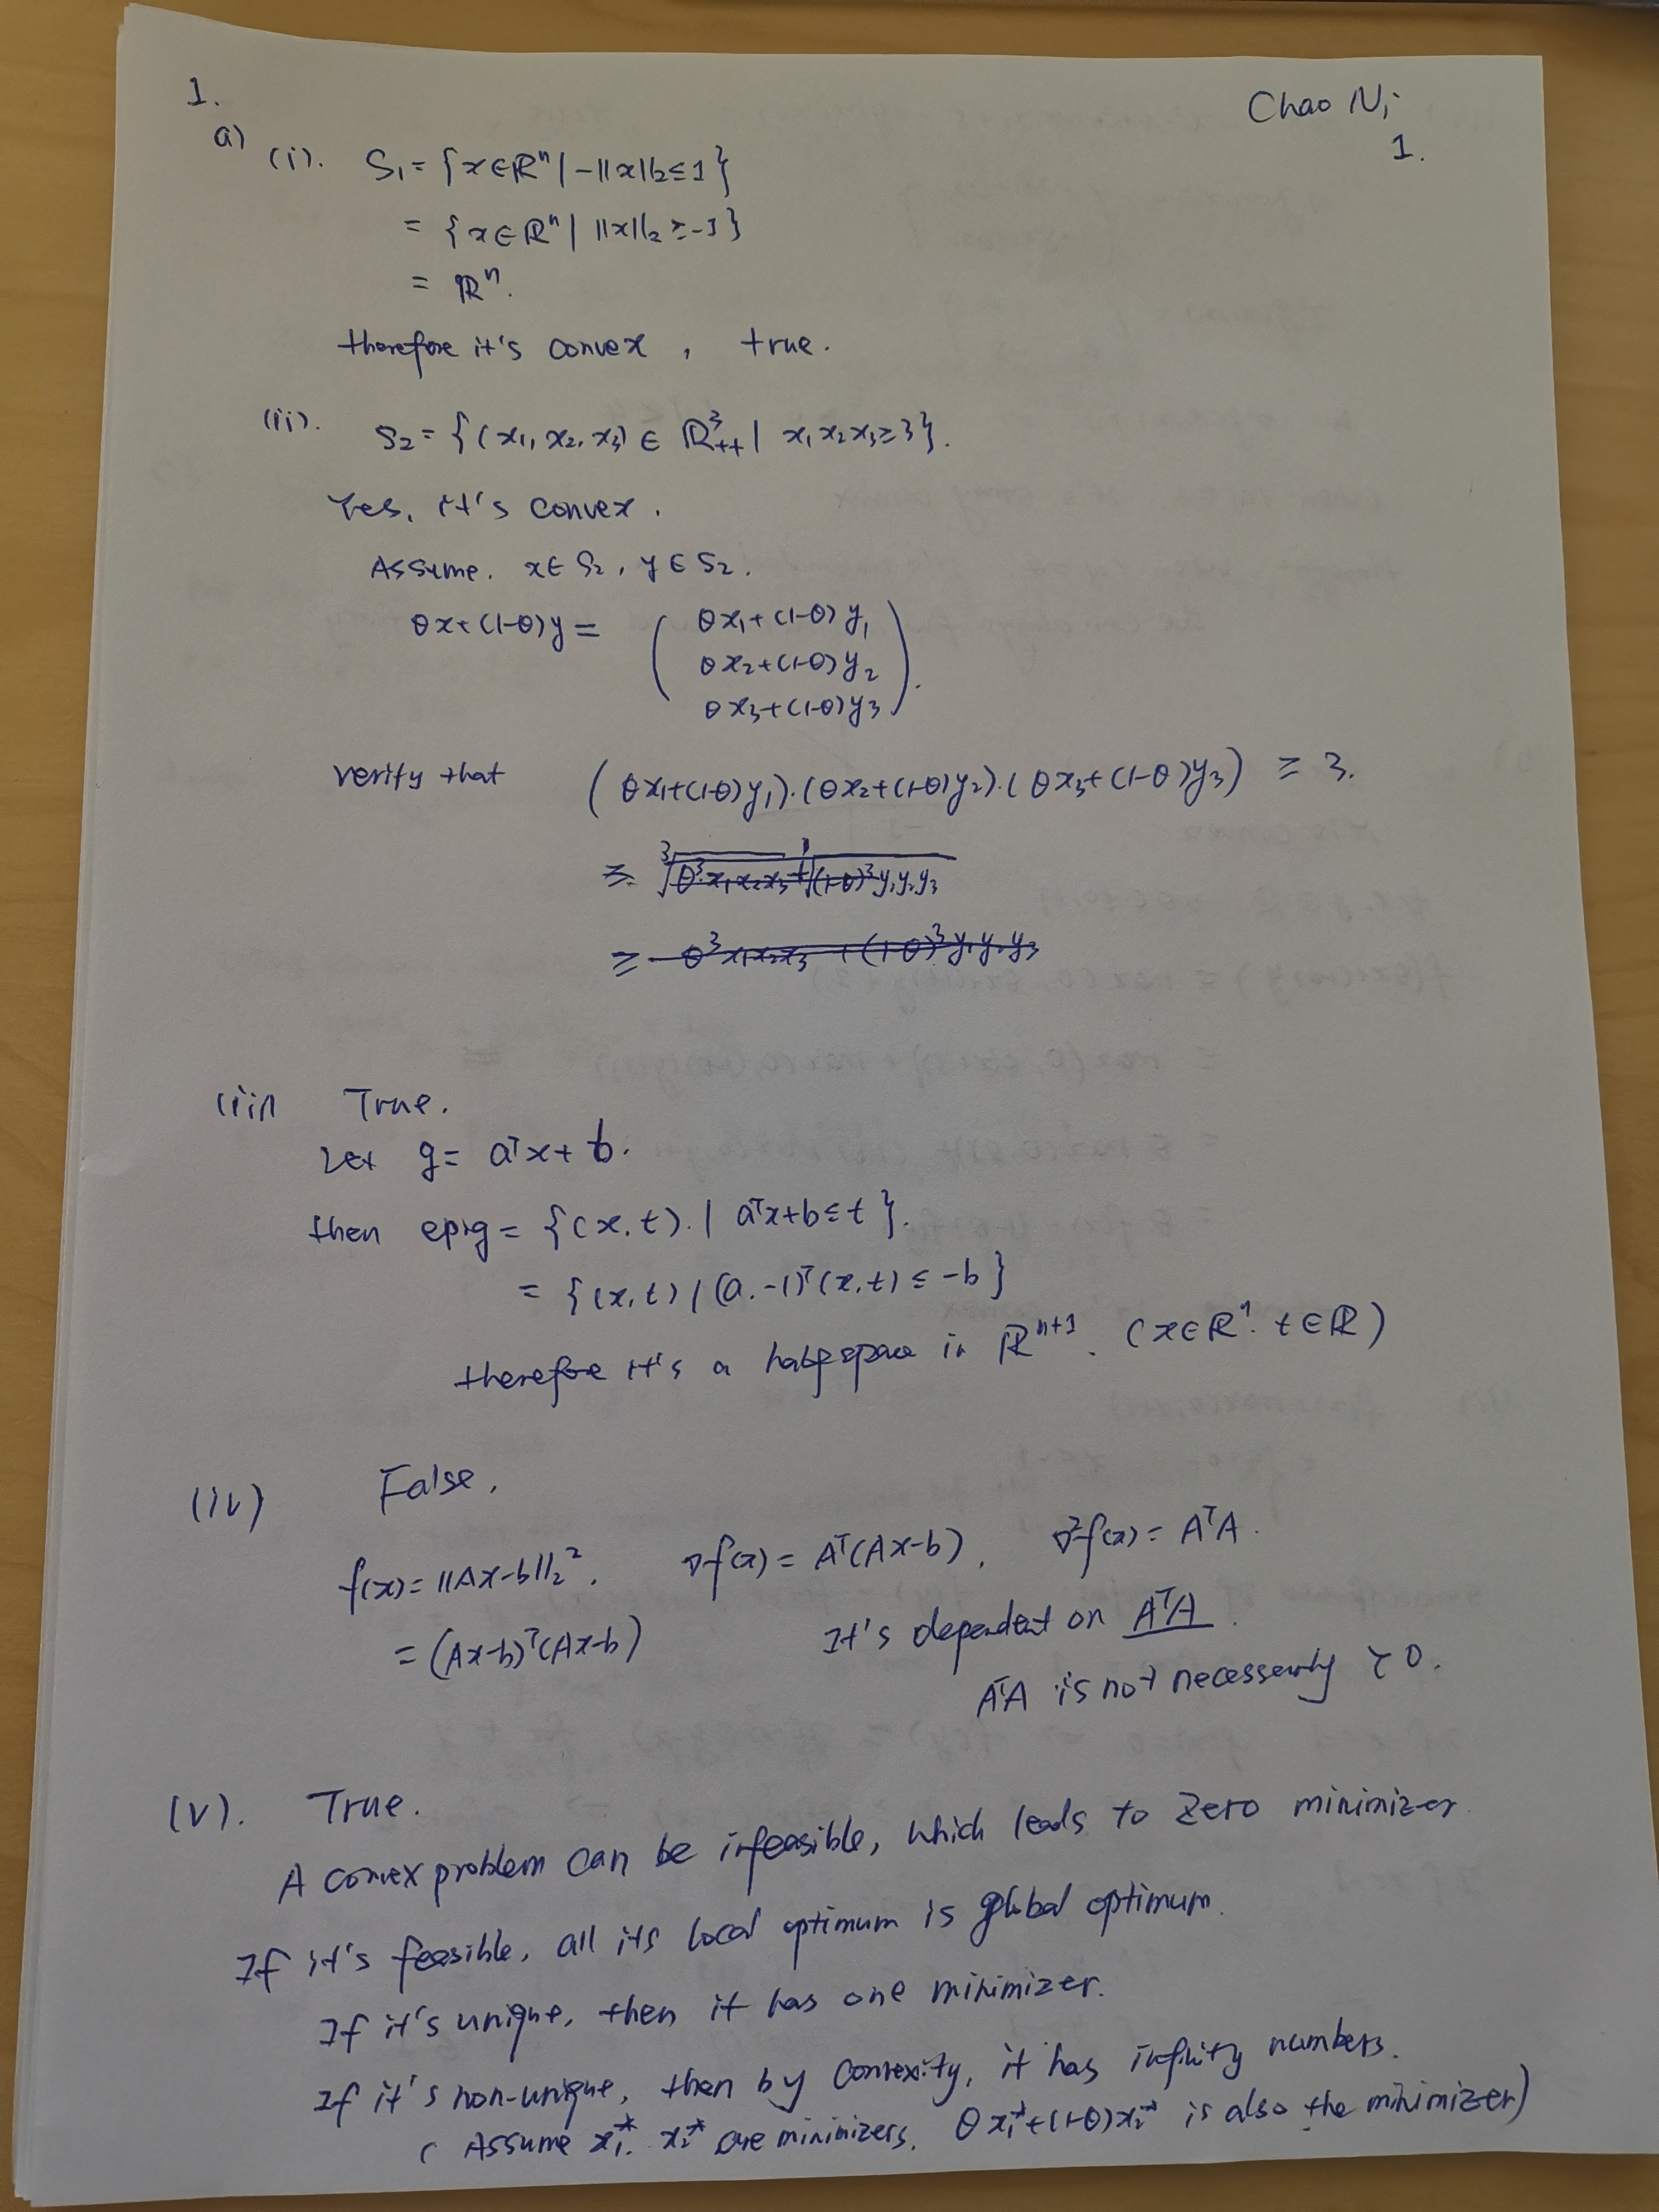 1.
Chao Ni
1.
a) (i). S₁ = {x∈ℝⁿ | -||x||₂ ≤ 1}
= {x∈ℝⁿ | ||x||₂ ≥ -1}
= ℝⁿ.
therefore it's convex, true.
(ii). S₂ = {(x₁, x₂, x₃) ∈ ℝ³₊₊ | x₁x₂x₃ ≥ 3}.
Yes, it's convex.
Assume. x∈S₂, y∈S₂.
θx+(1-θ)y = ( θx₁+(1-θ)y₁
θx₂+(1-θ)y₂
θx₃+(1-θ)y₃ ).
verify that (θx₁+(1-θ)y₁)·(θx₂+(1-θ)y₂)·(θx₃+(1-θ)y₃) ≥ 3.
≥
≥ θ³x₁x₂x₃ + (1-θ)³y₁y₂y₃
(iii) True.
Let g = aᵀx + b.
then epi g = {(x,t). | aᵀx+b ≤ t}.
= {(x,t) | (a,-1)ᵀ(x,t) ≤ -b}
therefore it's a halfspace in ℝⁿ⁺¹. (x∈ℝⁿ. t∈ℝ)
(iv) False.
f(x) = ||Ax-b||₂². ∇f(x) = Aᵀ(Ax-b). ∇²f(x) = AᵀA.
= (Ax-b)ᵀ(Ax-b) It's dependent on AᵀA.
AᵀA is not necessarily ≻ 0.
(v). True.
A convex problem can be infeasible, which leads to zero minimizer.
If it's feasible, all its local optimum is global optimum.
If it's unique, then it has one minimizer.
If it's non-unique, then by convexity, it has infinity numbers.
( Assume x₁*. x₂* are minimizers. θx₁*+(1-θ)x₂* is also the minimizer)